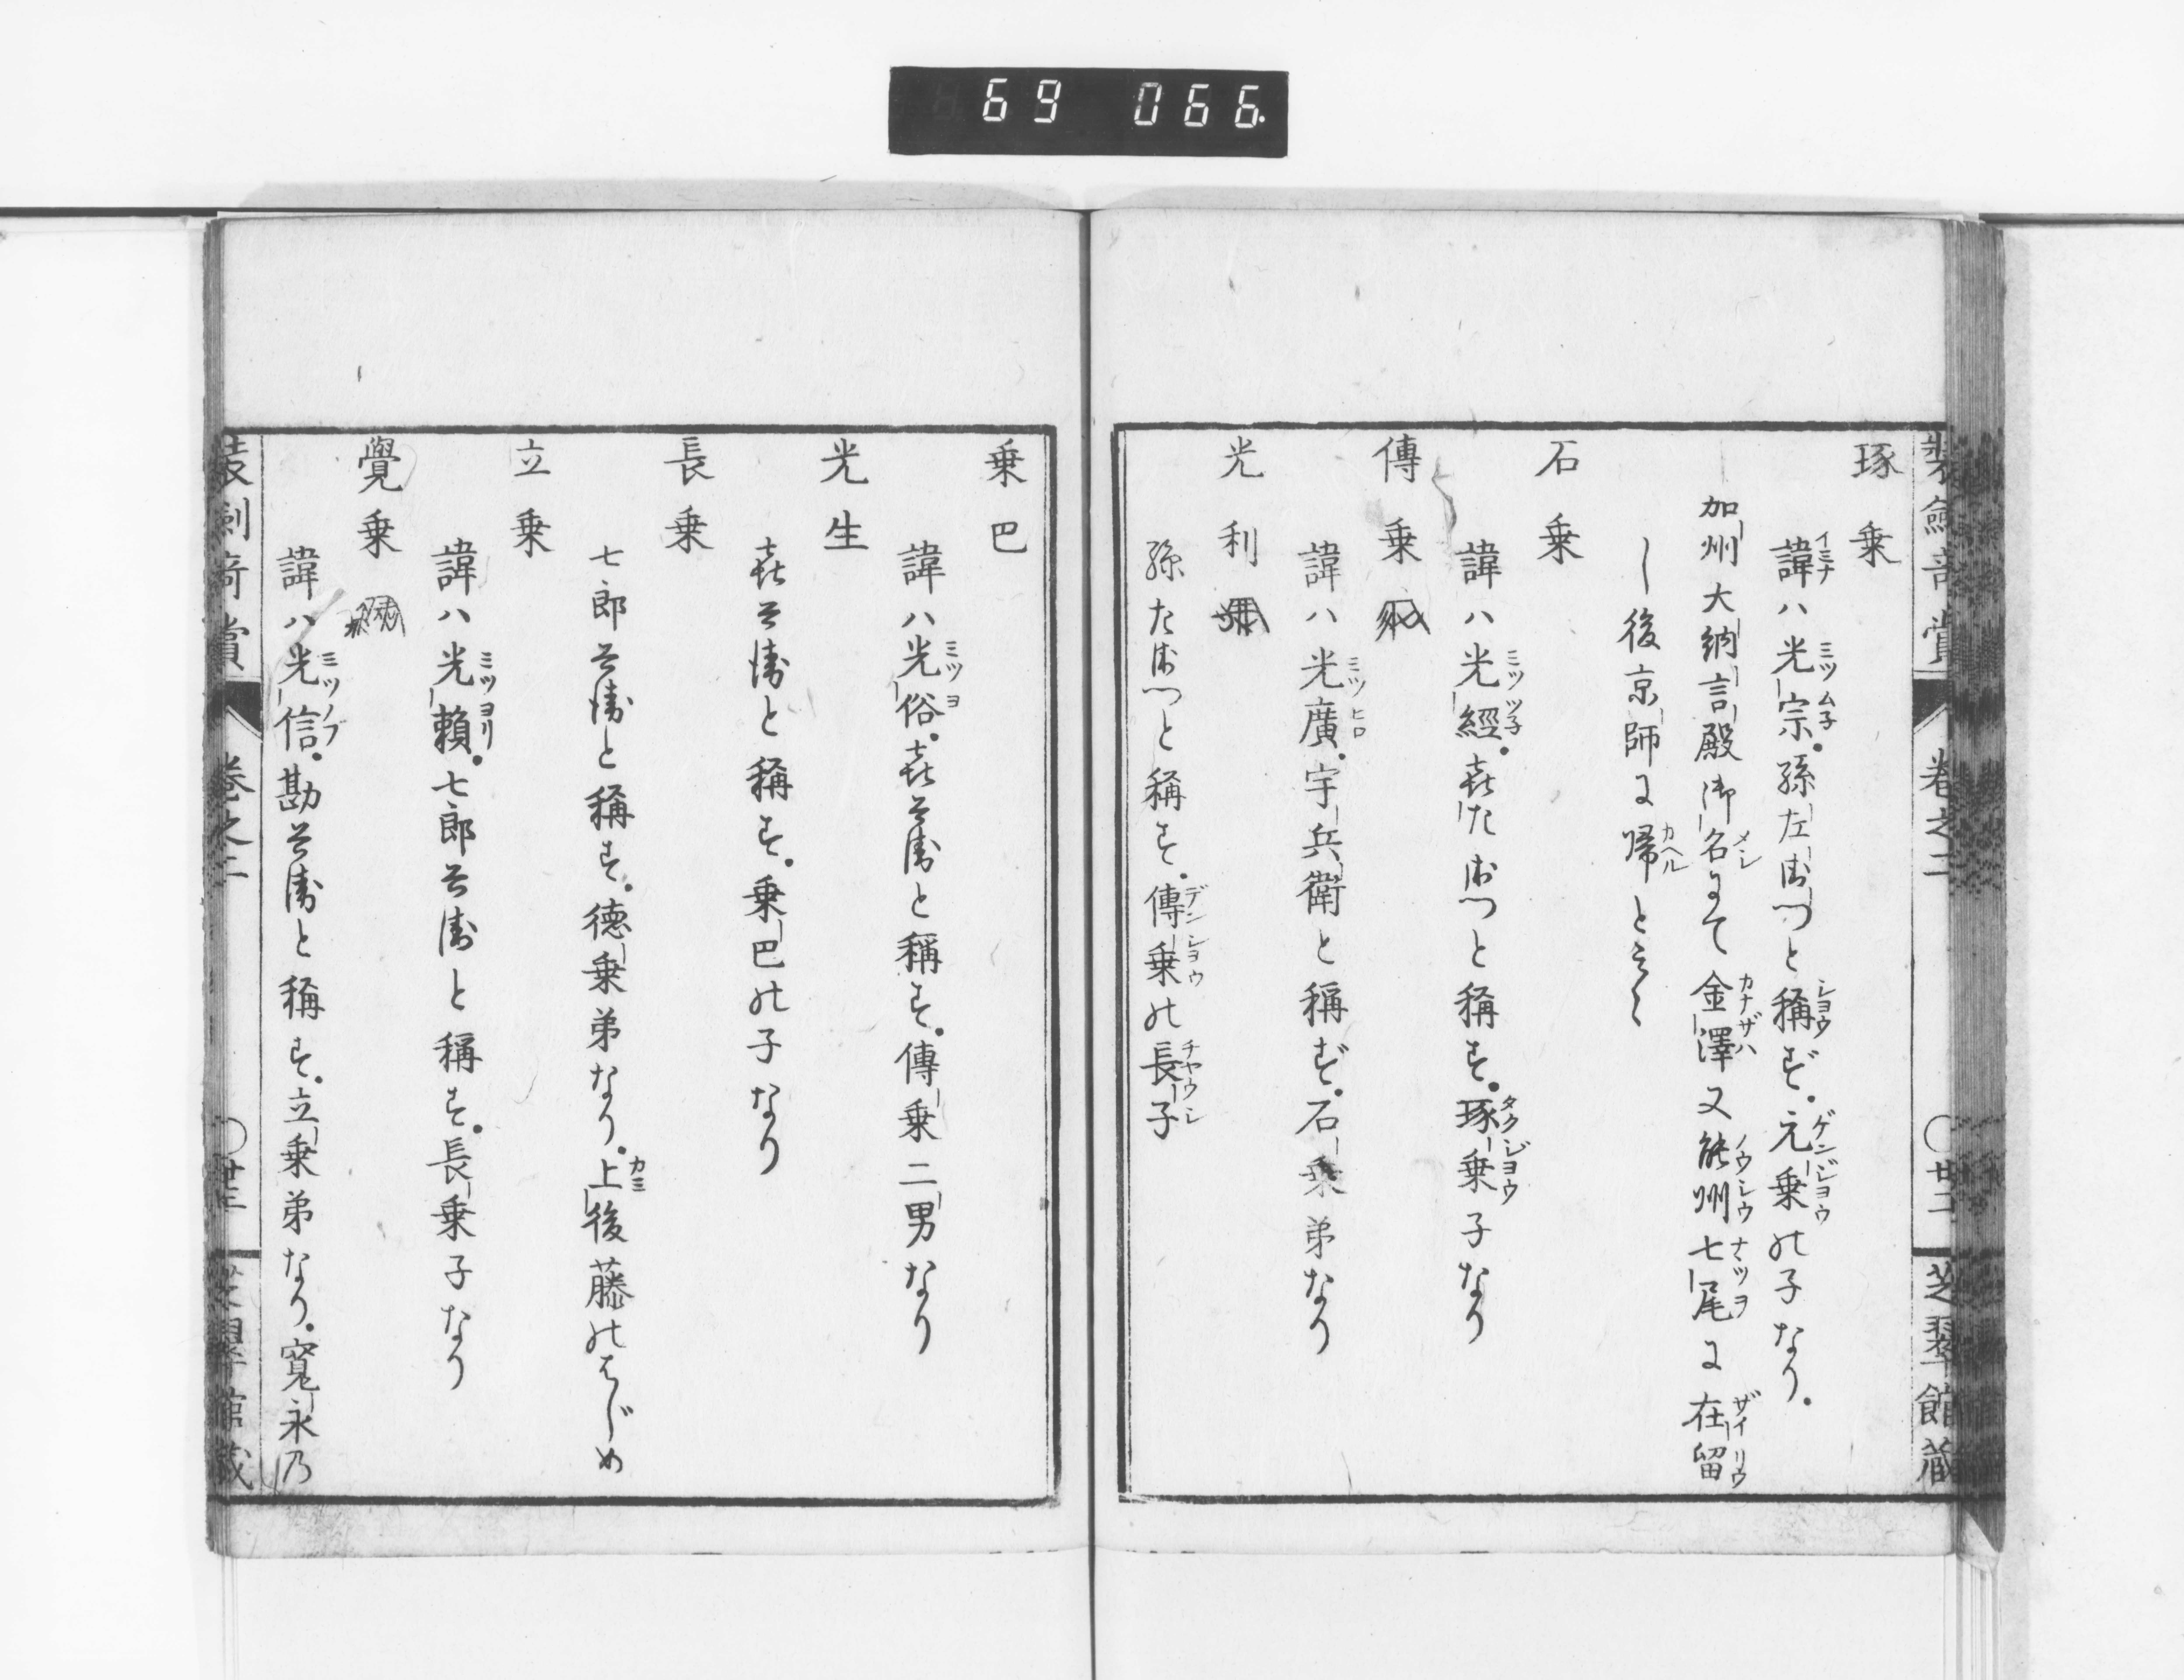 69 066.
裝劔竒賞 卷之二 〇廿二 芝翠館蔵
琢乗
諱ハ光宗。孫左衛門と稱ず。元乗の子なり。
加州大納言殿御名にて金澤又能州七尾に在留
し後京師に帰と
石乗
諱ハ光經。㐂左衛門と稱す。琢乗子なり
傳乗
諱ハ光廣。宇兵衛と稱ず。石乗弟なり
光利
孫左衛門と稱す。傳乗の長子
乗巴
諱ハ光俗。㐂兵衛と稱す。傳乗二男なり
光生
㐂兵衛と稱す。乗巴の子なり
長乗
七郎兵衛と稱す。徳乗弟なり。上後藤のはじめ
立乗
諱ハ光頼。七郎兵衛と稱す。長乗子なり
覺乗
諱ハ光信。勘兵衛と稱す。立乗弟なり。寛永乃
裝劔竒賞 卷之二 〇廿三 芝翠館蔵